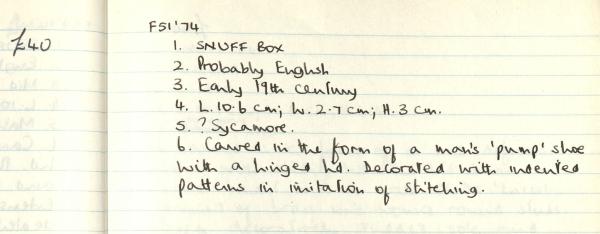 F51'74
£40
1. SNUFF BOX
2. Probably English
3. Early 19th century
4. L. 10.6 cm; W. 2.7 cm; H. 3 cm.
5. ? Sycamore.
6. Carved in the form of a man's 'pump' shoe
with a hinged lid. Decorated with indented
patterns in imitation of stitching.